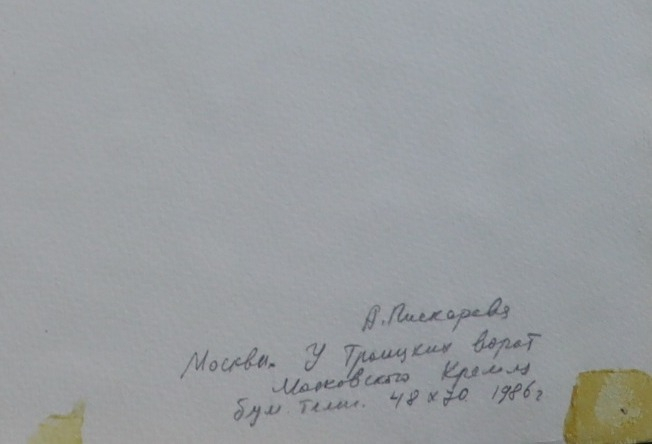 А. Пискарева
Москва. У Троицких ворот
Московского Кремля
бум. темп. 48 x 70 1986 г